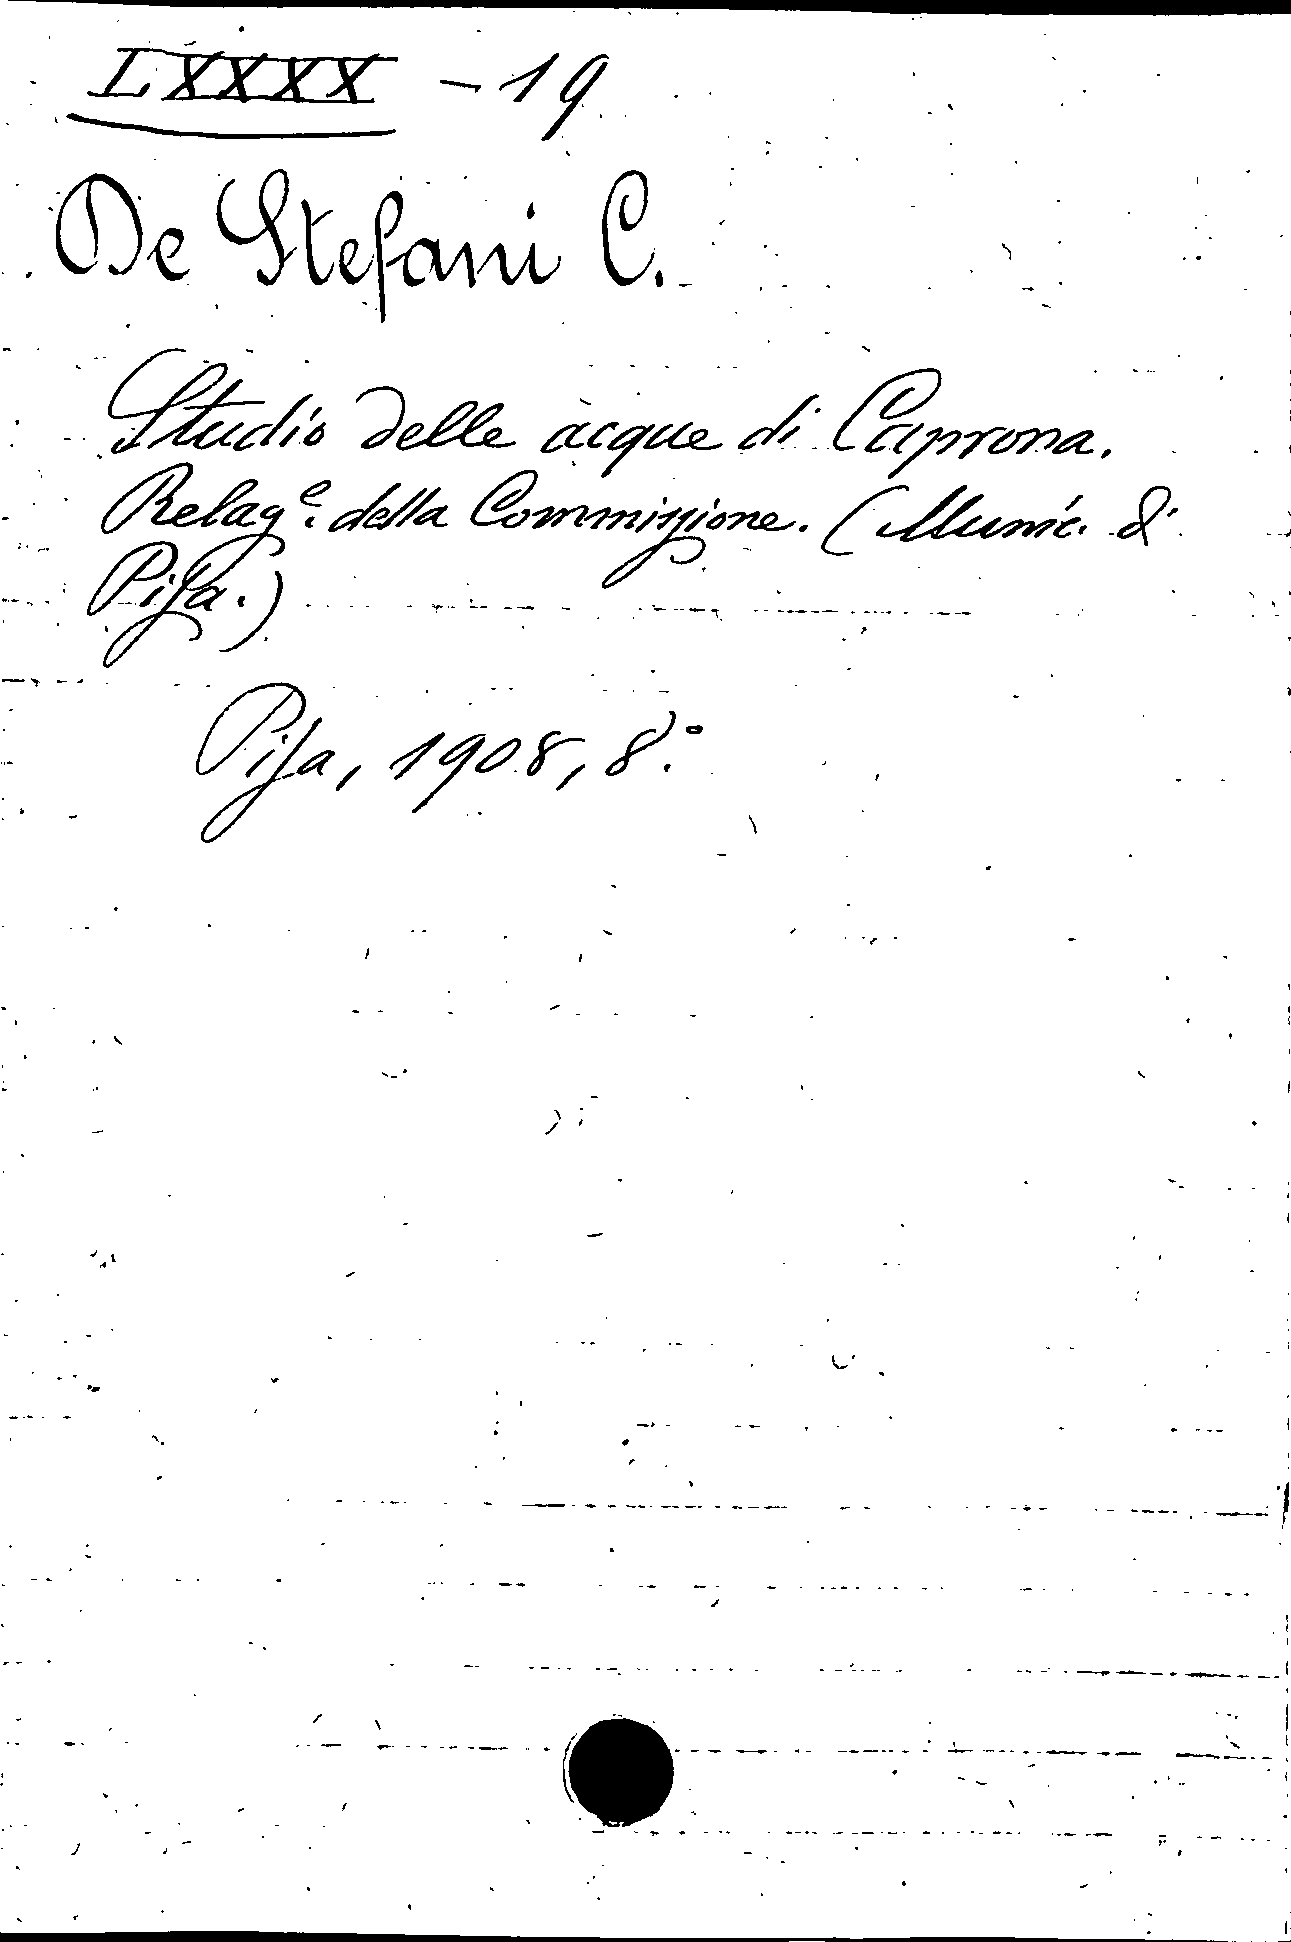 LXXXX - 19
De Stefani C.
Studio delle acque di Caprona.
Relazᵉ. della Commissione. (Munic. di
Pisa.)
Pisa, 1908, 8.°